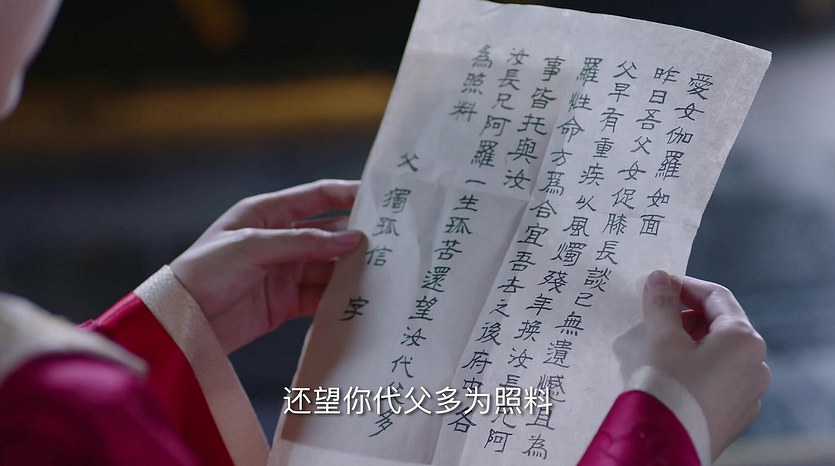 愛女伽羅如面
昨日吾父女促膝長談已無遺憾且為
父早有重疾以風燭殘年換汝長兄阿
羅性命方為合宜吾去之後府中各
事皆托與汝
汝長兄阿羅一生孤苦還望汝代父多
為照料
父 獨孤信 字
还望你代父多为照料